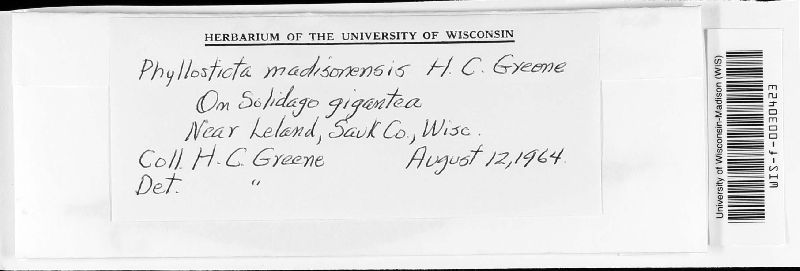 HERBARIUM OF THE UNIVERSITY OF WISCONSIN
Phyllosticta madisonensis H. C. Greene
On Solidago gigantea
Near Leland, Sauk Co., Wisc.
Coll. H. C. Greene August 12, 1964.
Det. "
University of Wisconsin-Madison (WIS)
WIS-f-0030423